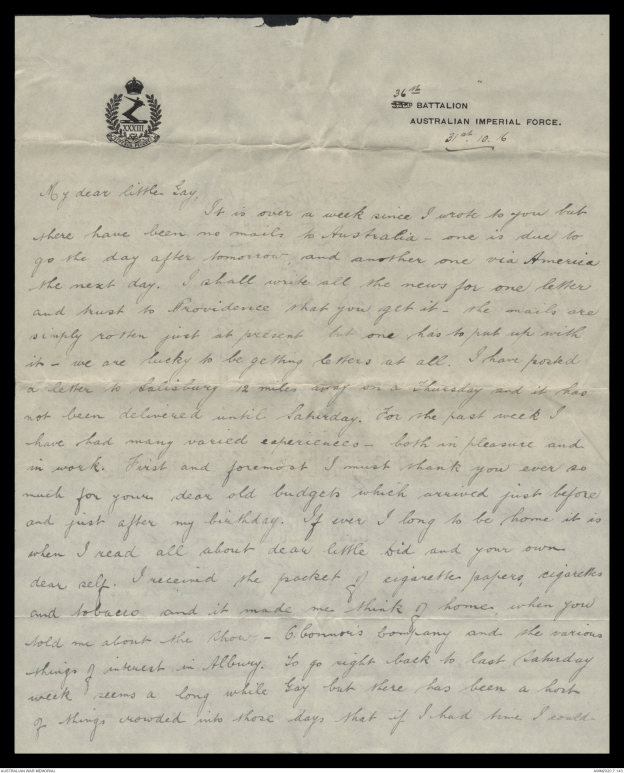 XXXIII
36th
33RD BATTALION
AUSTRALIAN IMPERIAL FORCE.
31st. 10. 16
My dear little Gay,
It is over a week since I wrote to you but
there have been no mails to Australia - one is due to
go the day after tomorrow, and another one via America
the next day. I shall write all the news for one letter
and trust to Providence that you get it - the mails are
simply rotten just at present but one has to put up with
it - we are lucky to be getting letters at all. I have posted
a letter to Salisbury 12 miles away on a Thursday and it has
not been delivered until Saturday. For the past week I
have had many varied experiences - both in pleasure and
in work. First and foremost I must thank you ever so
much for your dear old budgets which arrived just before
and just after my birthday. If ever I long to be home it is
when I read all about dear little Did and your own
dear self. I received the packet of cigarette papers, cigarettes
and tobacco and it made me think of home when you
told me about the show - O'Connors Company and the various
things of interest in Albury. To go right back to last Saturday
week seems a long while Gay but there has been a host
of things crowded into those days that if I had time I could
AUSTRALIAN WAR MEMORIAL